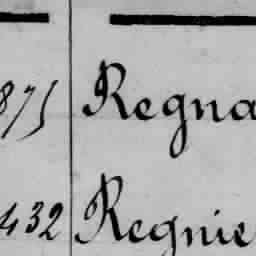 875 Regna
432 Regnie